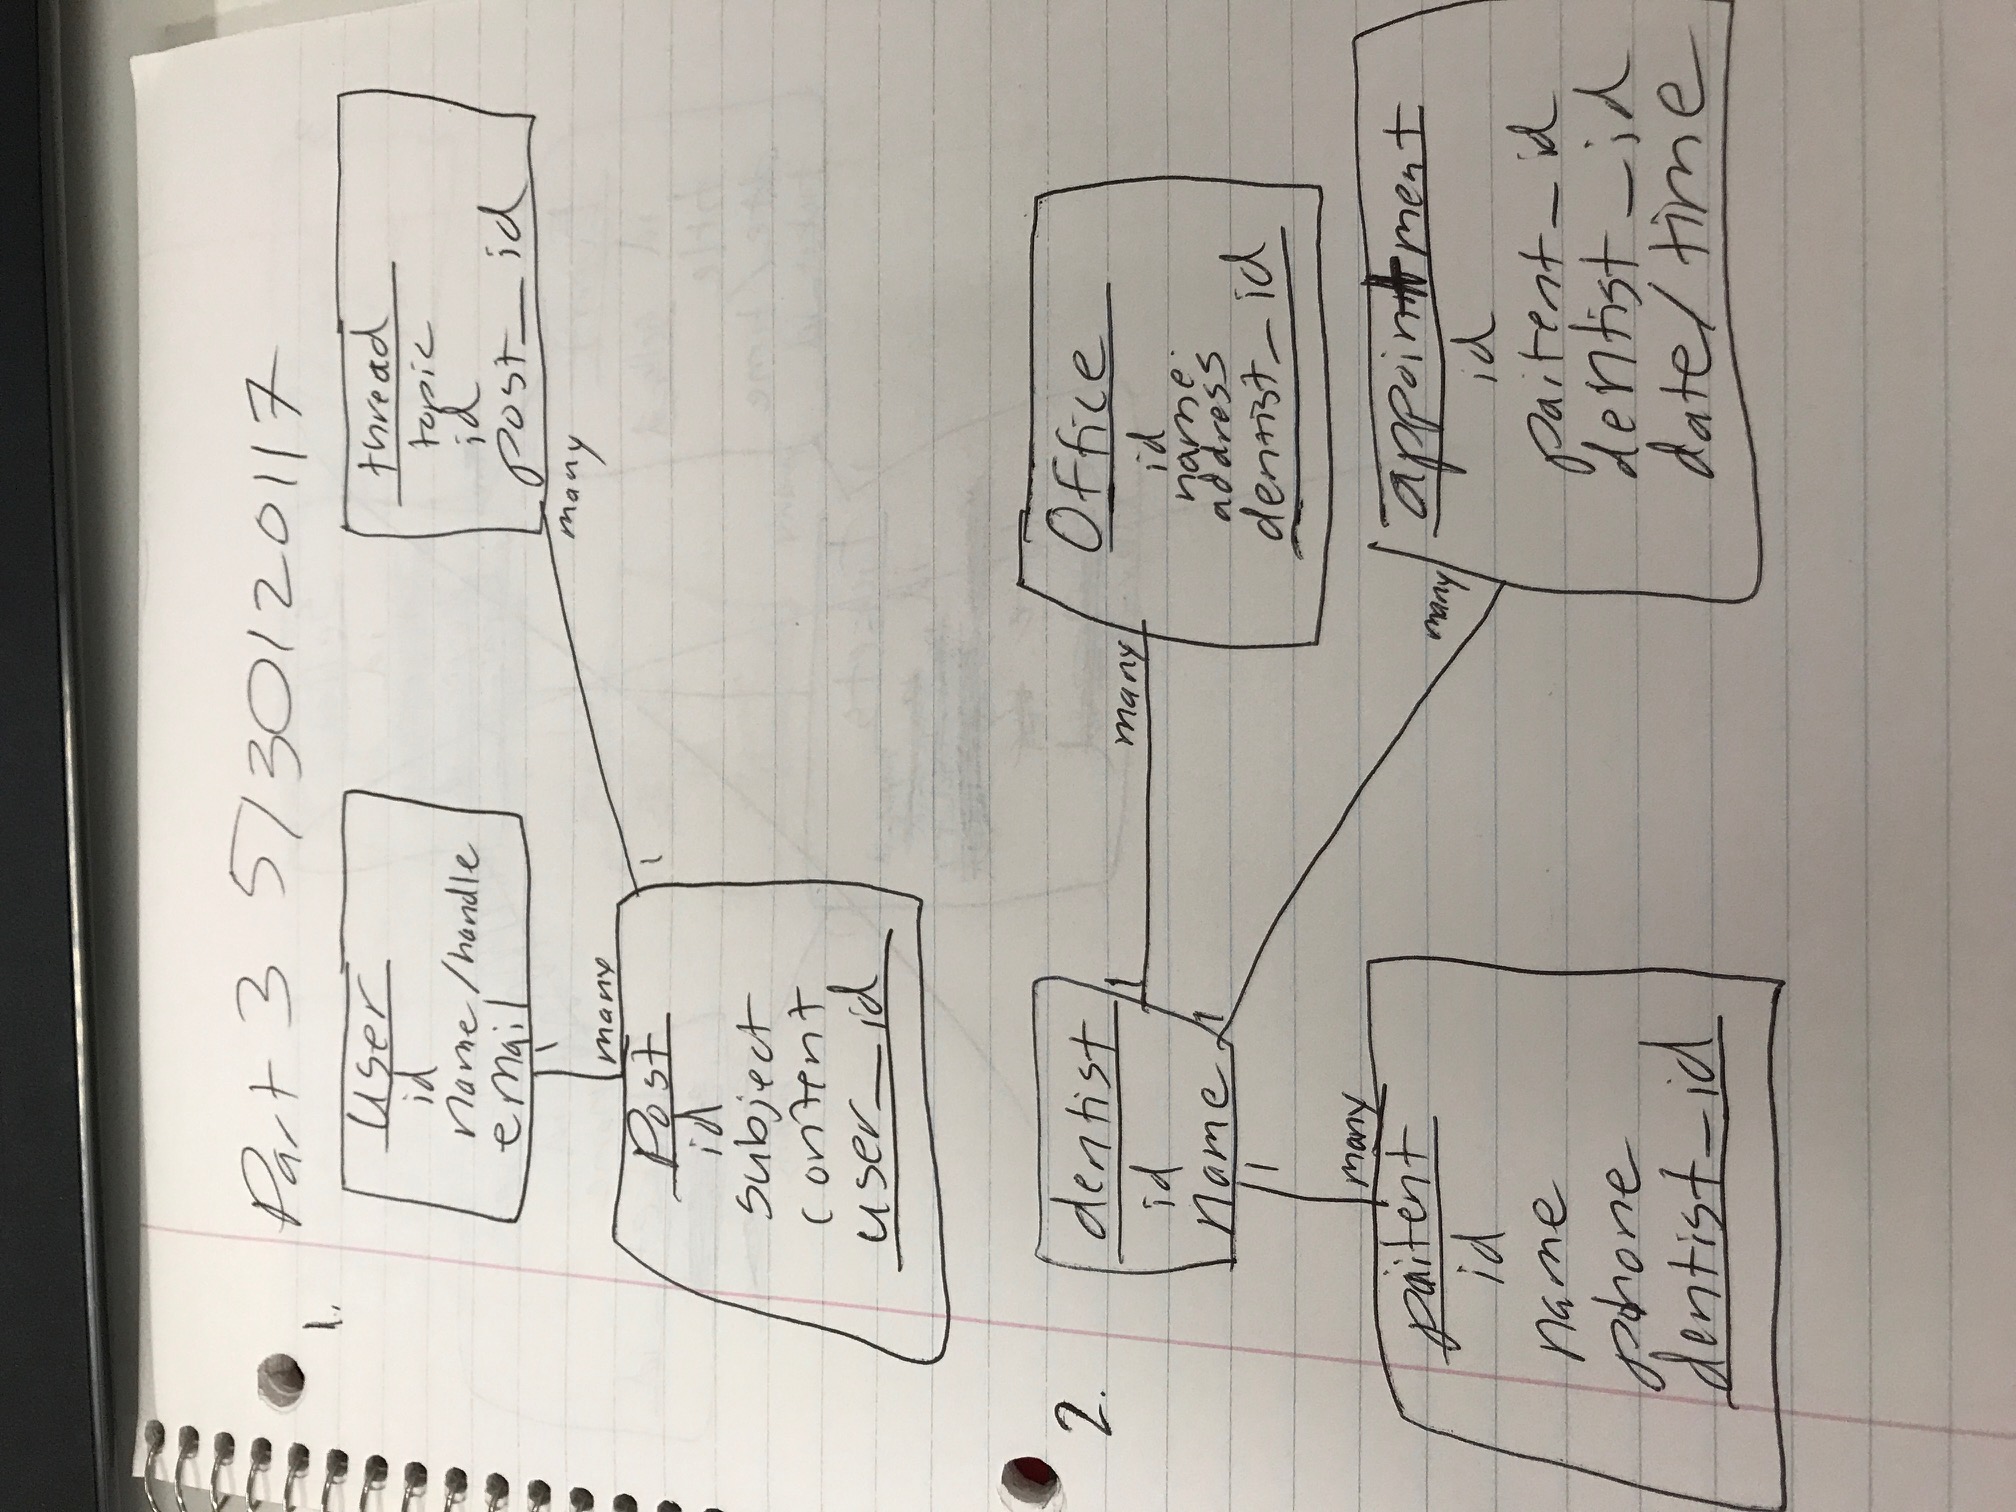 Part 3 5/30/20117
1.
user
id
name/handle
email
1
many
thread
topic
id
post_id
many
1
Post
id
subject
content
user_id
2.
dentist
id
name
1
many
1
many
1
many
Office
id
name
address
dentist_id
paitent
id
name
phone
dentist_id
appointment
id
paitent_id
dentist_id
date/time